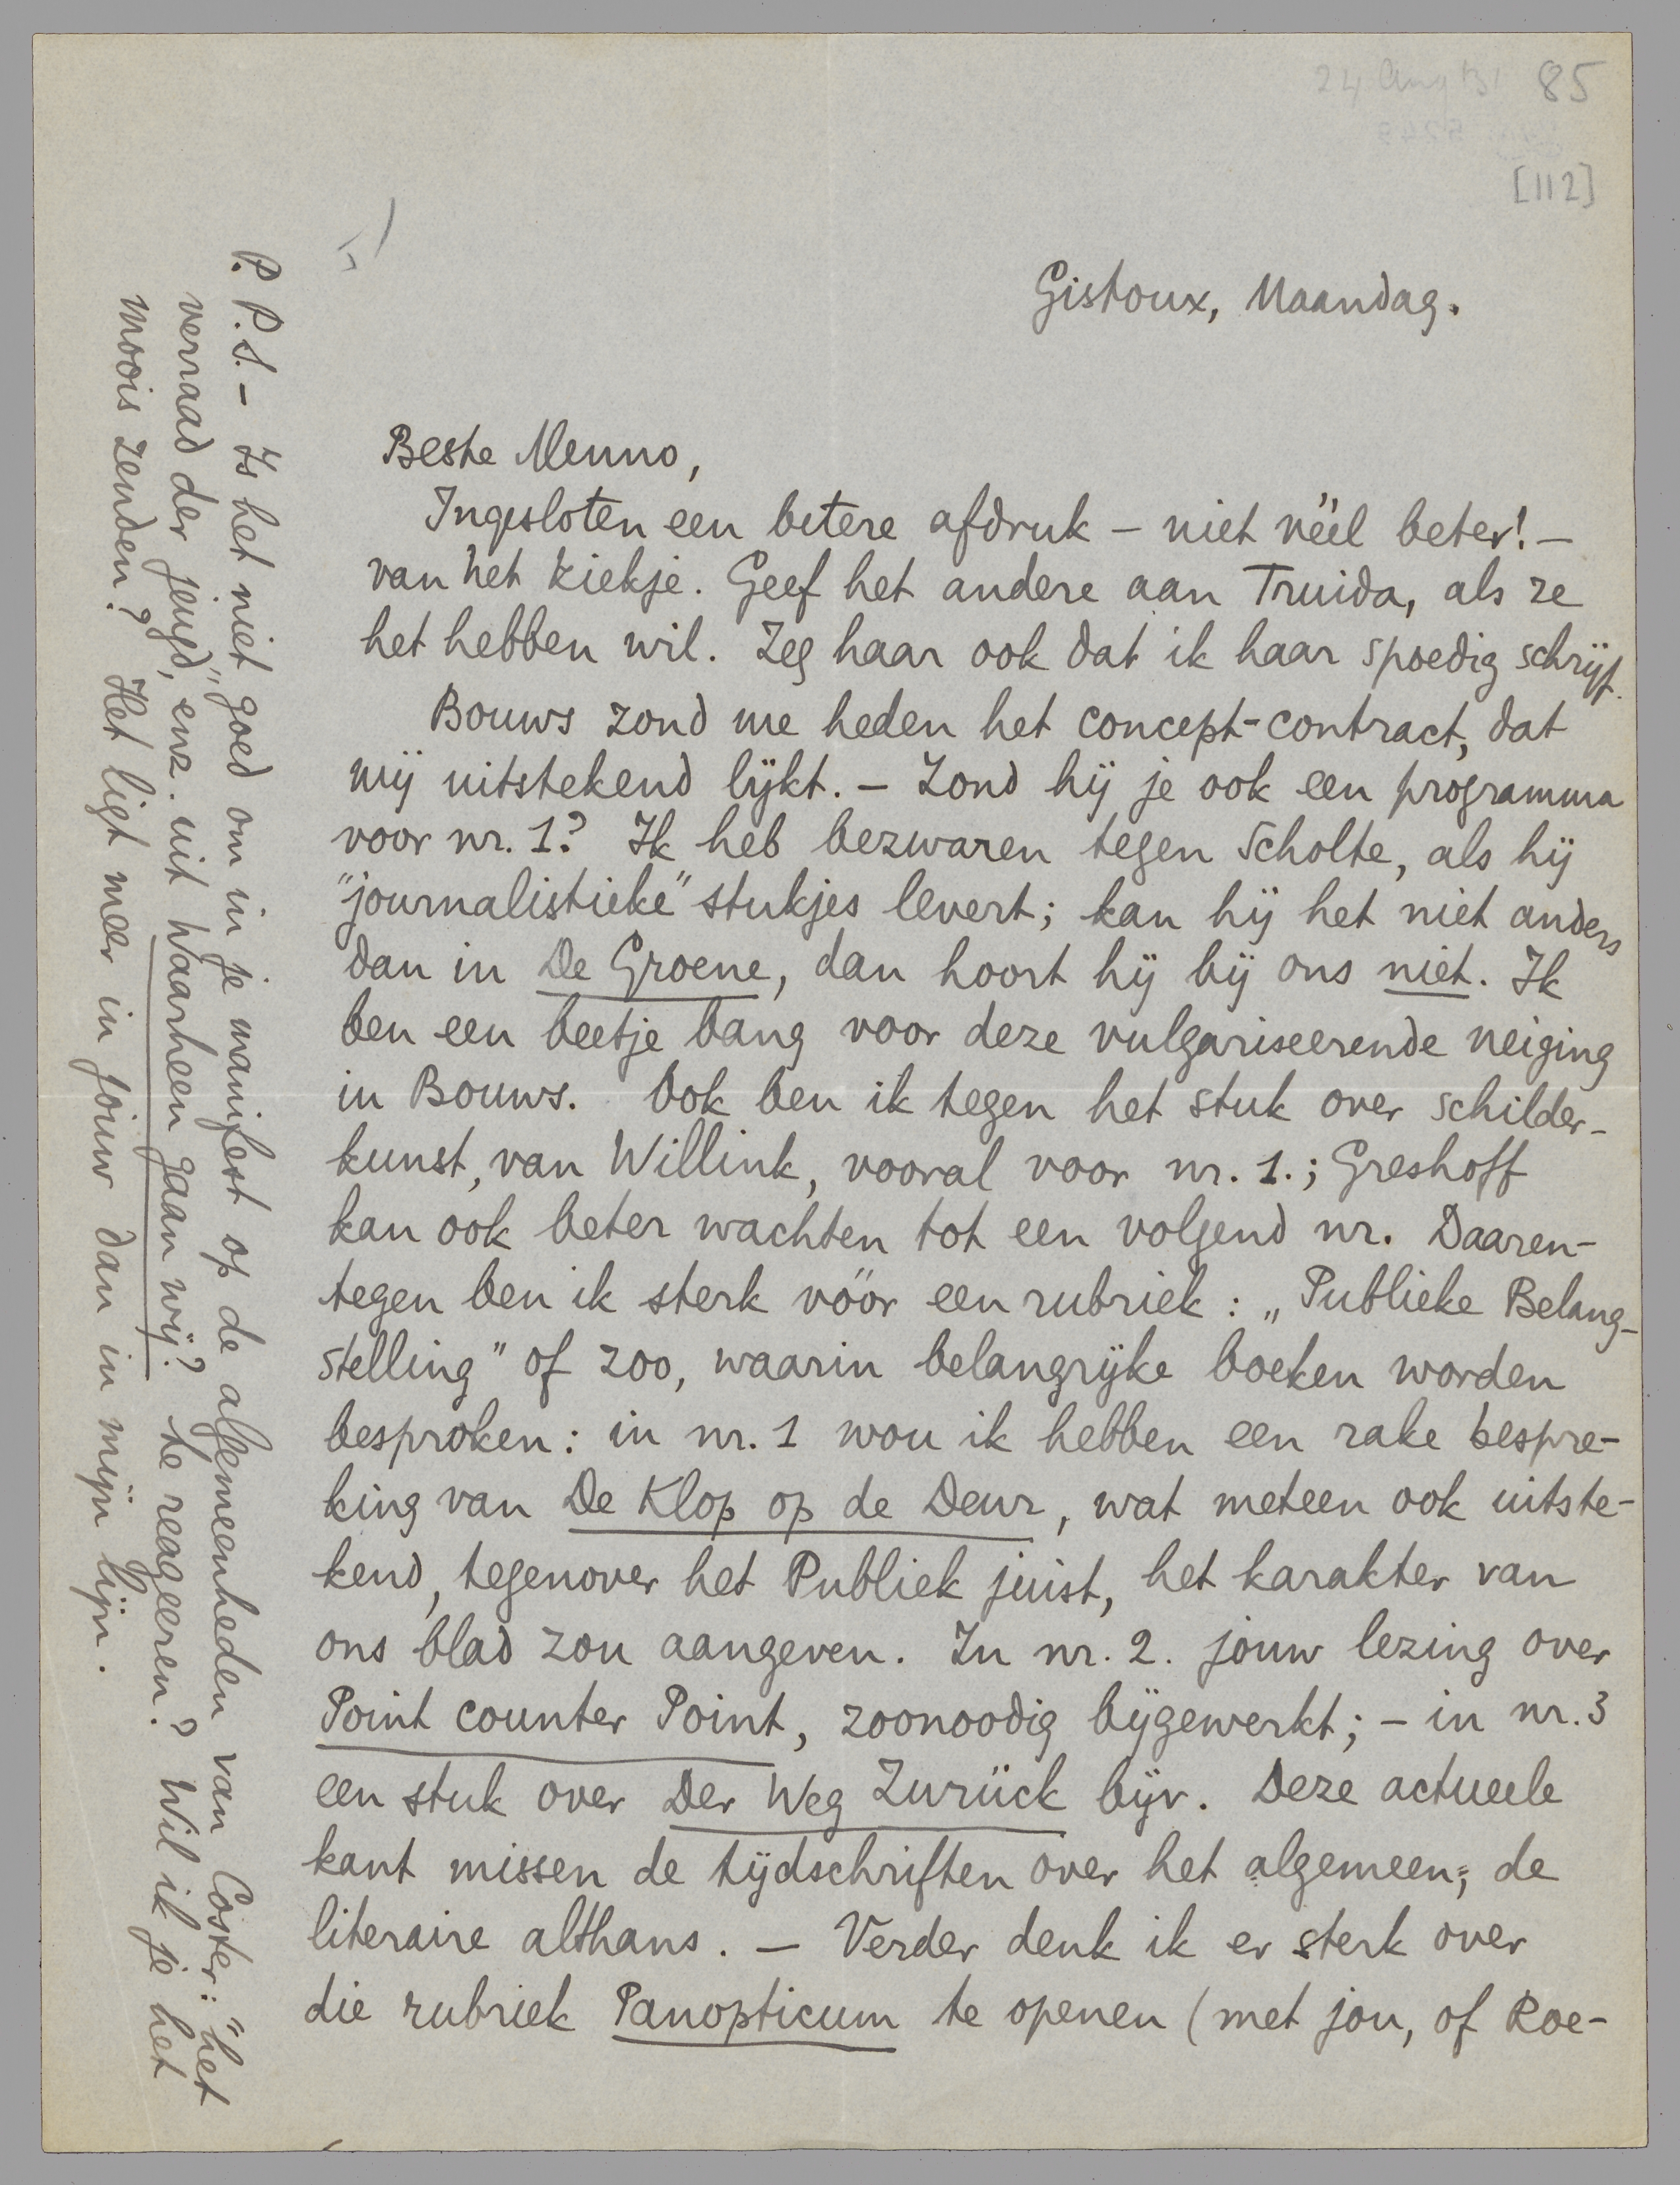 24 Aug 31 85
[112]
Gistoux, Maandag.
Beste Menno,
Ingesloten een betere afdruk – niet véél beter! –
van het kiekje. Geef het andere aan Truida, als ze
het hebben wil. Zeg haar ook dat ik haar spoedig schrijf.
Bouws zond me heden het concept-contract, dat
mij uitstekend lijkt. – Zond hij je ook een programma
voor nr. 1? Ik heb bezwaren tegen Scholte, als hij
"journalistieke" stukjes levert; kan hij het niet anders
dan in De Groene, dan hoort hij bij ons niet. Ik
ben een beetje bang voor deze vulgariseerende neiging
in Bouws. Ook ben ik tegen het stuk over schilder-
kunst, van Willink, vooral voor nr. 1.; Greshoff
kan ook beter wachten tot een volgend nr. Daaren-
tegen ben ik sterk vóór een rubriek: „Publieke Belang-
stelling" of zoo, waarin belangrijke boeken worden
besproken: in nr. 1 wou ik hebben een rake bespre-
king van De Klop op de Deur, wat meteen ook uitste-
kend, tegenover het Publiek juist, het karakter van
ons blad zou aangeven. In nr. 2. jouw lezing over
Point counter Point, zoonoodig bijgewerkt; – in nr. 3
een stuk over Der Weg Zurück bijv. Deze actueele
kant missen de tijdschriften over het algemeen; de
literaire althans. – Verder denk ik er sterk over
die rubriek Panopticum te openen (met jou, of Roe-
P.P.S. – Is het niet goed om in je manifest op de algemeenheden van Coster: "het
verraad der jeugd," enz. uit Waarheen gaan wij? te reageeren? Wil ik je het
moois zenden? Het ligt meer in jouw dan in mijn lijn.